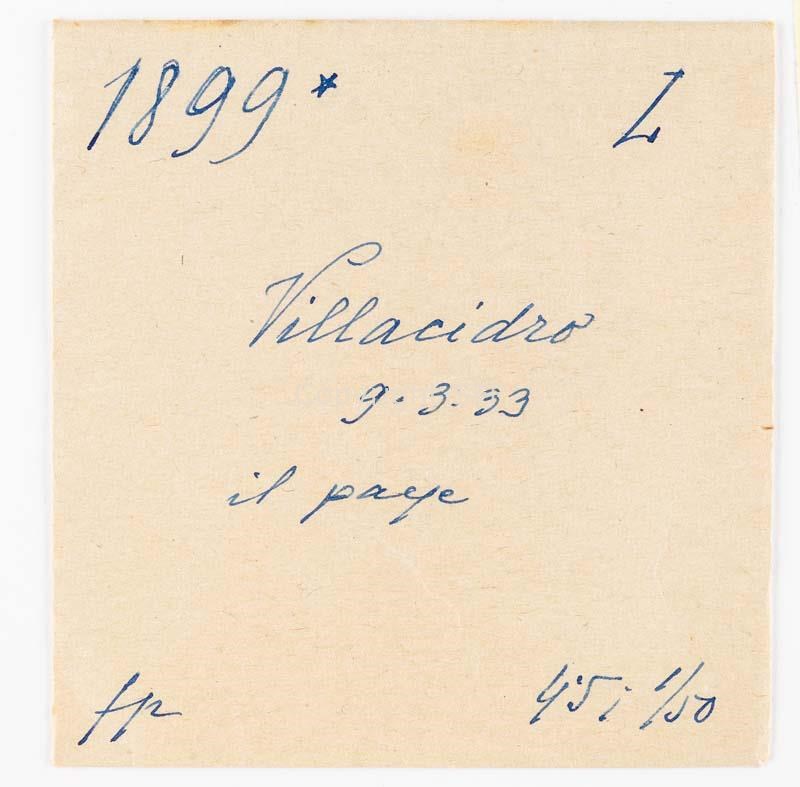 1899* L
Villacidro
9.3.33
il paese
fp 4'5; 1/50